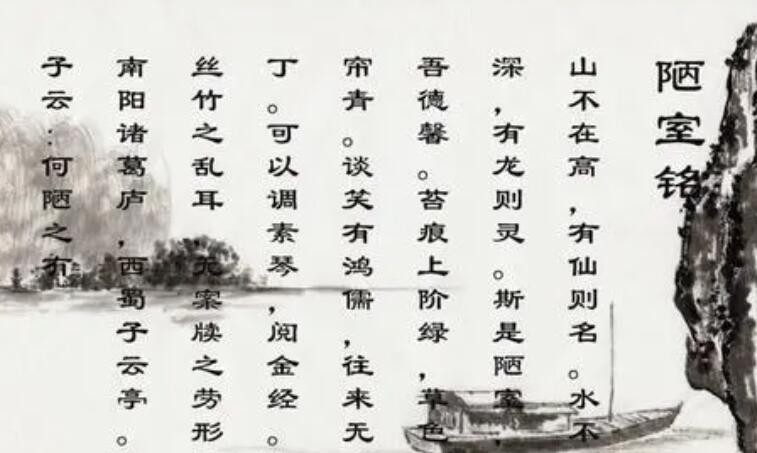 陋室铭
山不在高，有仙则名。水不
深，有龙则灵。斯是陋室，
吾德馨。苔痕上阶绿，草色
帘青。谈笑有鸿儒，往来无
丁。可以调素琴，阅金经。
丝竹之乱耳，无案牍之劳形
南阳诸葛庐，西蜀子云亭。
子云：何陋之有